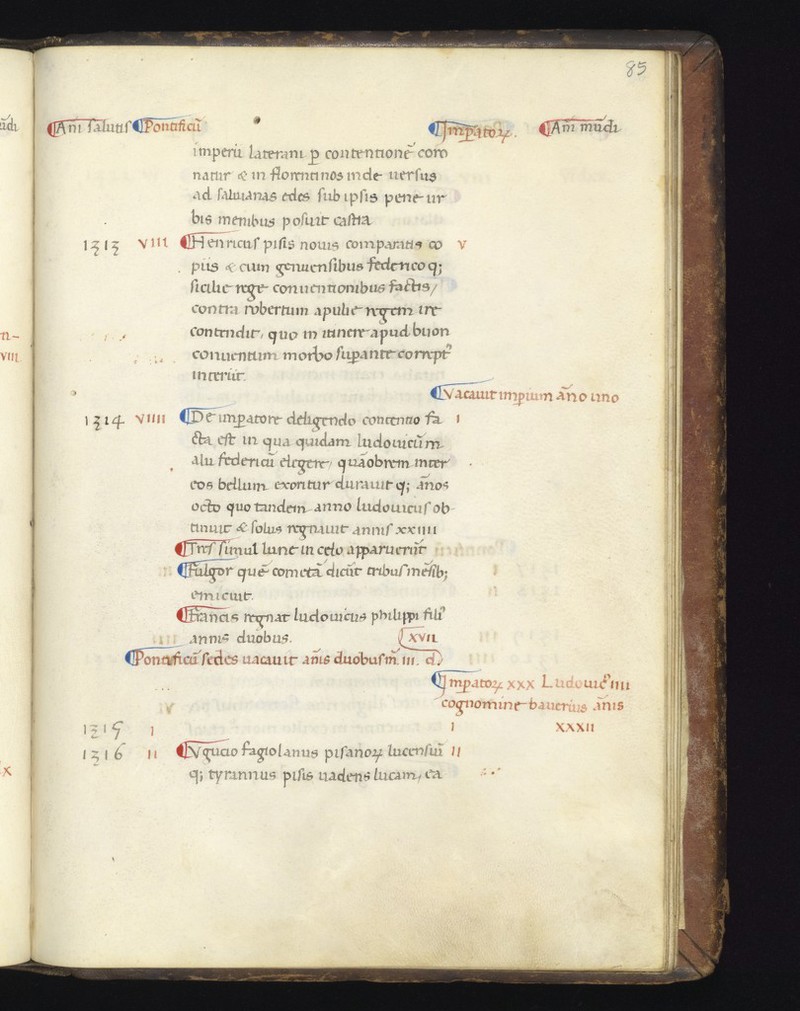 85
Añi salutis Pontificũ Impatoꝝ. Añi mũdi
imperii laterani p̱ contentionẽ coro
natur & in florentinos inde uersus
ad saluianas edes sub ipsis pene ur
bis menibus posuit castra
1313 VIII Henricus pisis nouis comparatis co v
piis & cum genuensibus federico q;
sicilie rege conuentionibus factis/
contra robertum apulie regem ire
contendit, quo in itinere apud buon
conuentum morbo sup̱ante corrept9
interiit.
Vacauit imp̱ium año uno
1314 VIIII De imp̱atore deligendo contentio fa I
cta est in qua quidam ludouicũ m
alii federicũ elegere, quãobrem inter
eos bellum exoritur durauit q; años
octo quo tandem anno ludouicus ob-
tinuit & solus regnauit annis xxiiii
Tres simul lune in celo apparuerũt
Fulgor quẽ cometã dicũt tribus mẽsib;
emicuit.
Francis regnat ludouicus philippi fili9
annis duobus. xvii
Pontificũ sedes uacauit añis duobus m̃. iii. d.
Imp̱atoꝝ xxx Ludouic9 iiii
cognomine bauerius añis
1315 I I XXXII
1316 II Vgucio fagiolanus pisanoꝝ lucensiũ II
q; tyrannus pisis uadens lucam, ea